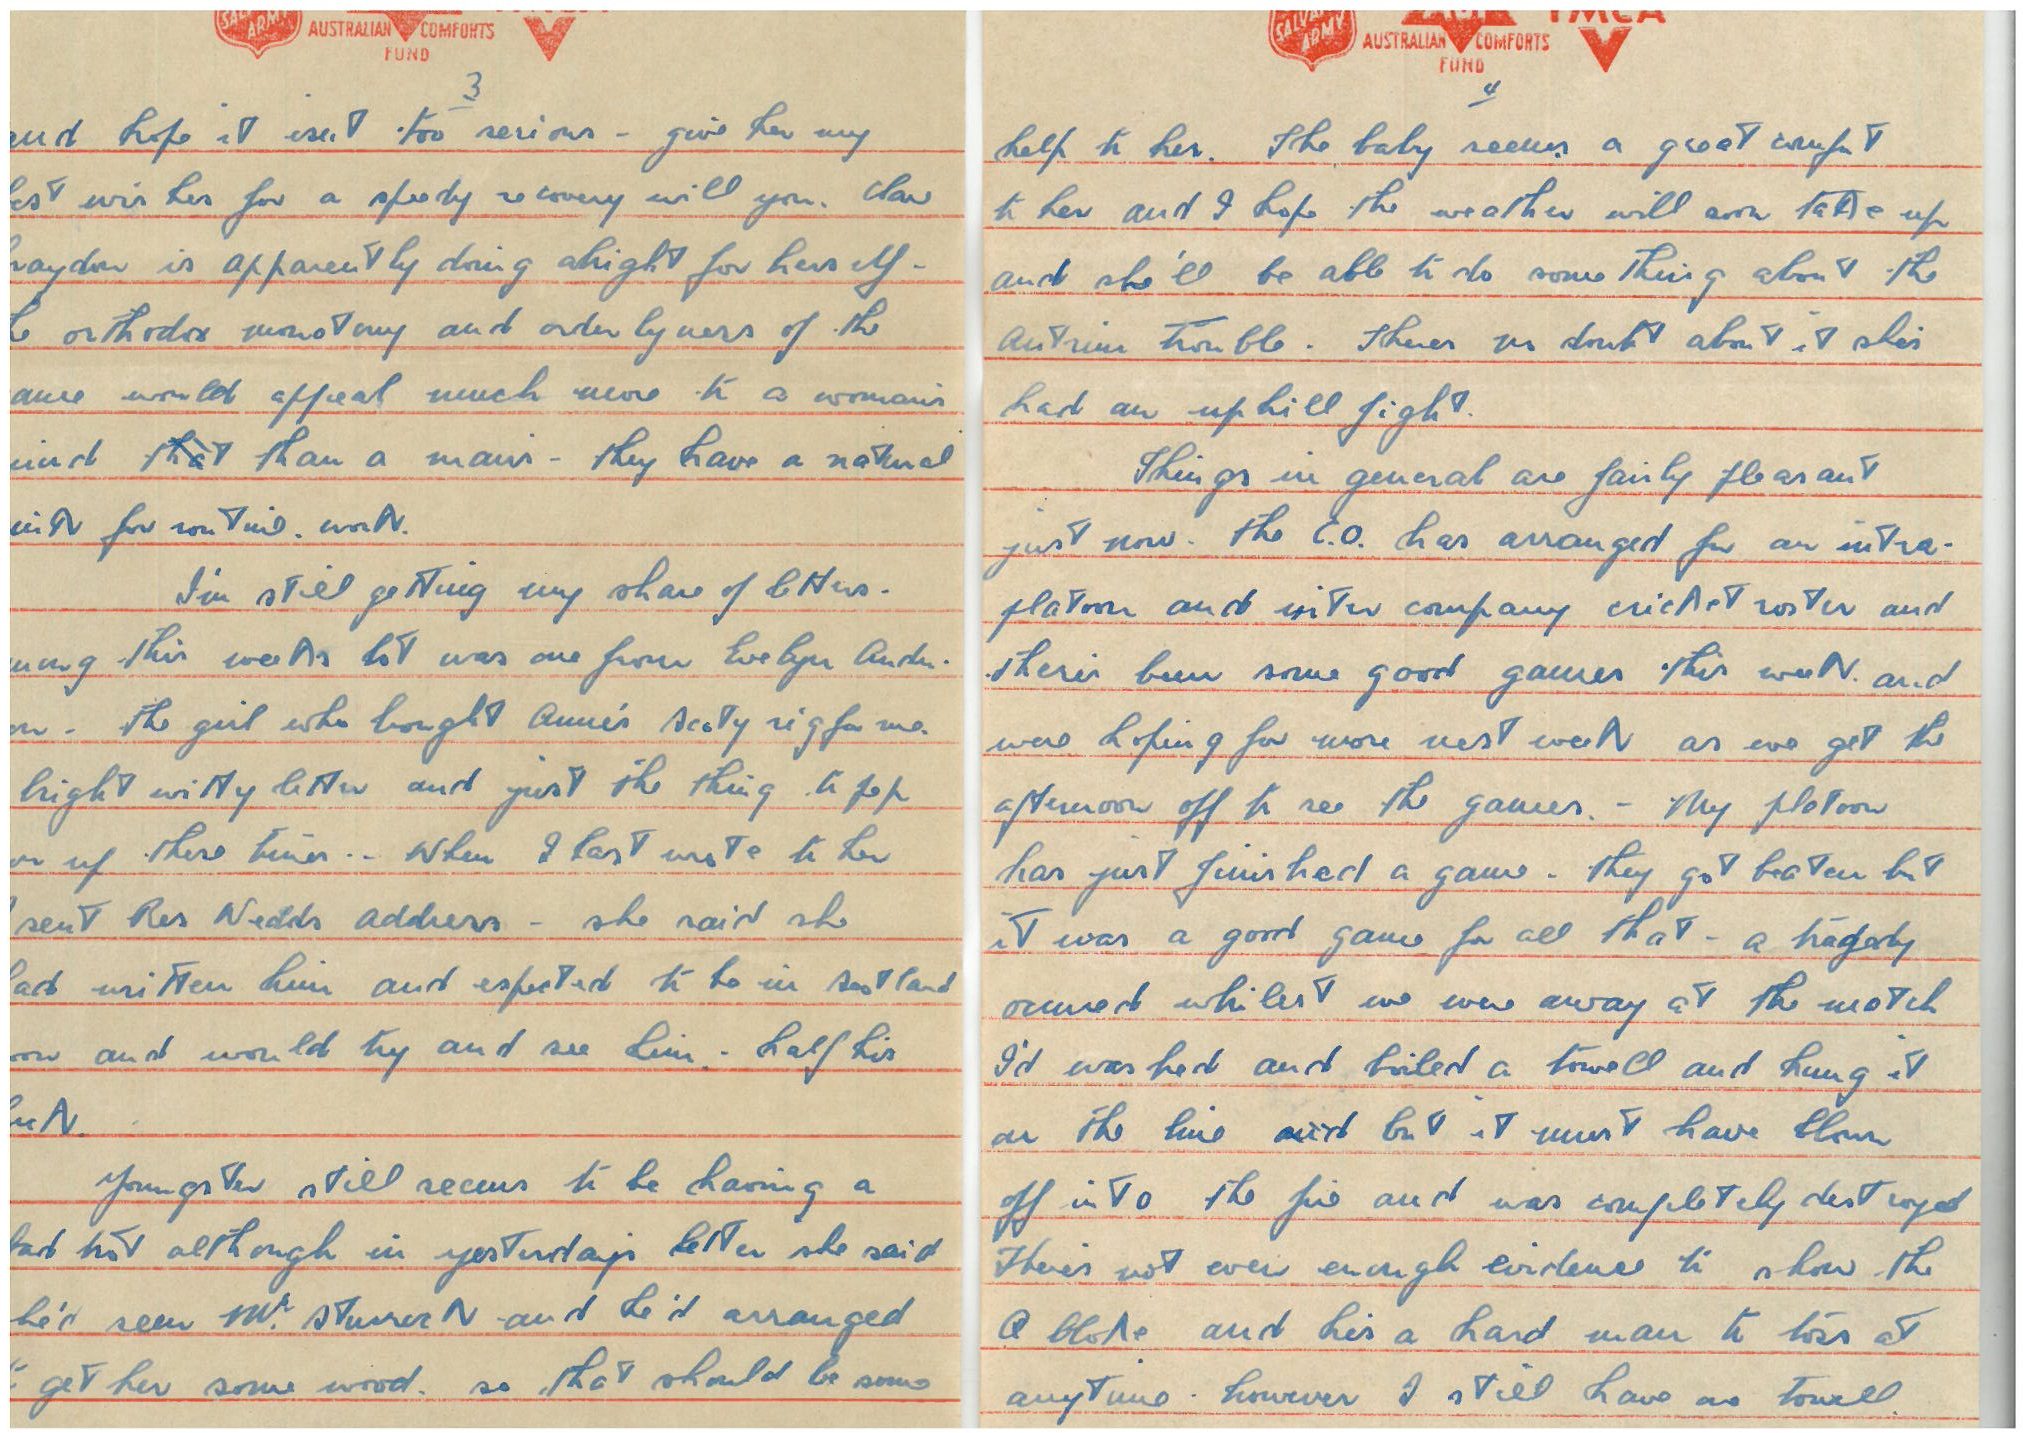 SALVATION ARMY
AUSTRALIAN COMFORTS
FUND
3
and hope it isn't too serious - give her my
best wishes for a speedy recovery will you. Clare
is apparently doing alright for herself -
the orthodox monotony and orderlyness of the
would appeal much more to a womans
mind that than a mans - they have a natural
for routine. work.
I'm still getting my share of letters.
among this weeks lot was one from Evelyn Ander-
son - the girl who bought Anne's Scoty rig for me.
bright witty letter and just the thing to pep
up these times. - When I last wrote to her
I sent Res Wedds address - she said she
had written him and expected to be in Scotland
soon and would try and see him. - half his
luck.
Youngster still seems to be having a
bad trot although in yesterdays letter she said
she'd seen Mr. Sturrock and he'd arranged
to get her some wood. so that should be some
SALVATION ARMY
AUSTRALIAN COMFORTS
FUND
YMCA
4
help to her. The baby seems a great comfort
to her and I hope the weather will soon take up
and she'll be able to do something about the
antrim trouble. Theres no doubt about it shes
had an uphill fight.
Things in general are fairly pleasant
just now. The C.O. has arranged for an intra-
platoon and inter company cricket roster and
theris been some good games this week. and
were hoping for more next week as we get the
afternoon off to see the games. - My platoon
has just finished a game - they got beaten but
it was a good game for all that - a tragedy
occurred whilest we were away at the match
I'd washed and boiled a towell and hung it
on the line and but it must have blown
off into the fire and was completely destroyed
Theris not even enough evidence to show the
Q bloke and his a hard man to toss at
anytime. however I still have one towell.